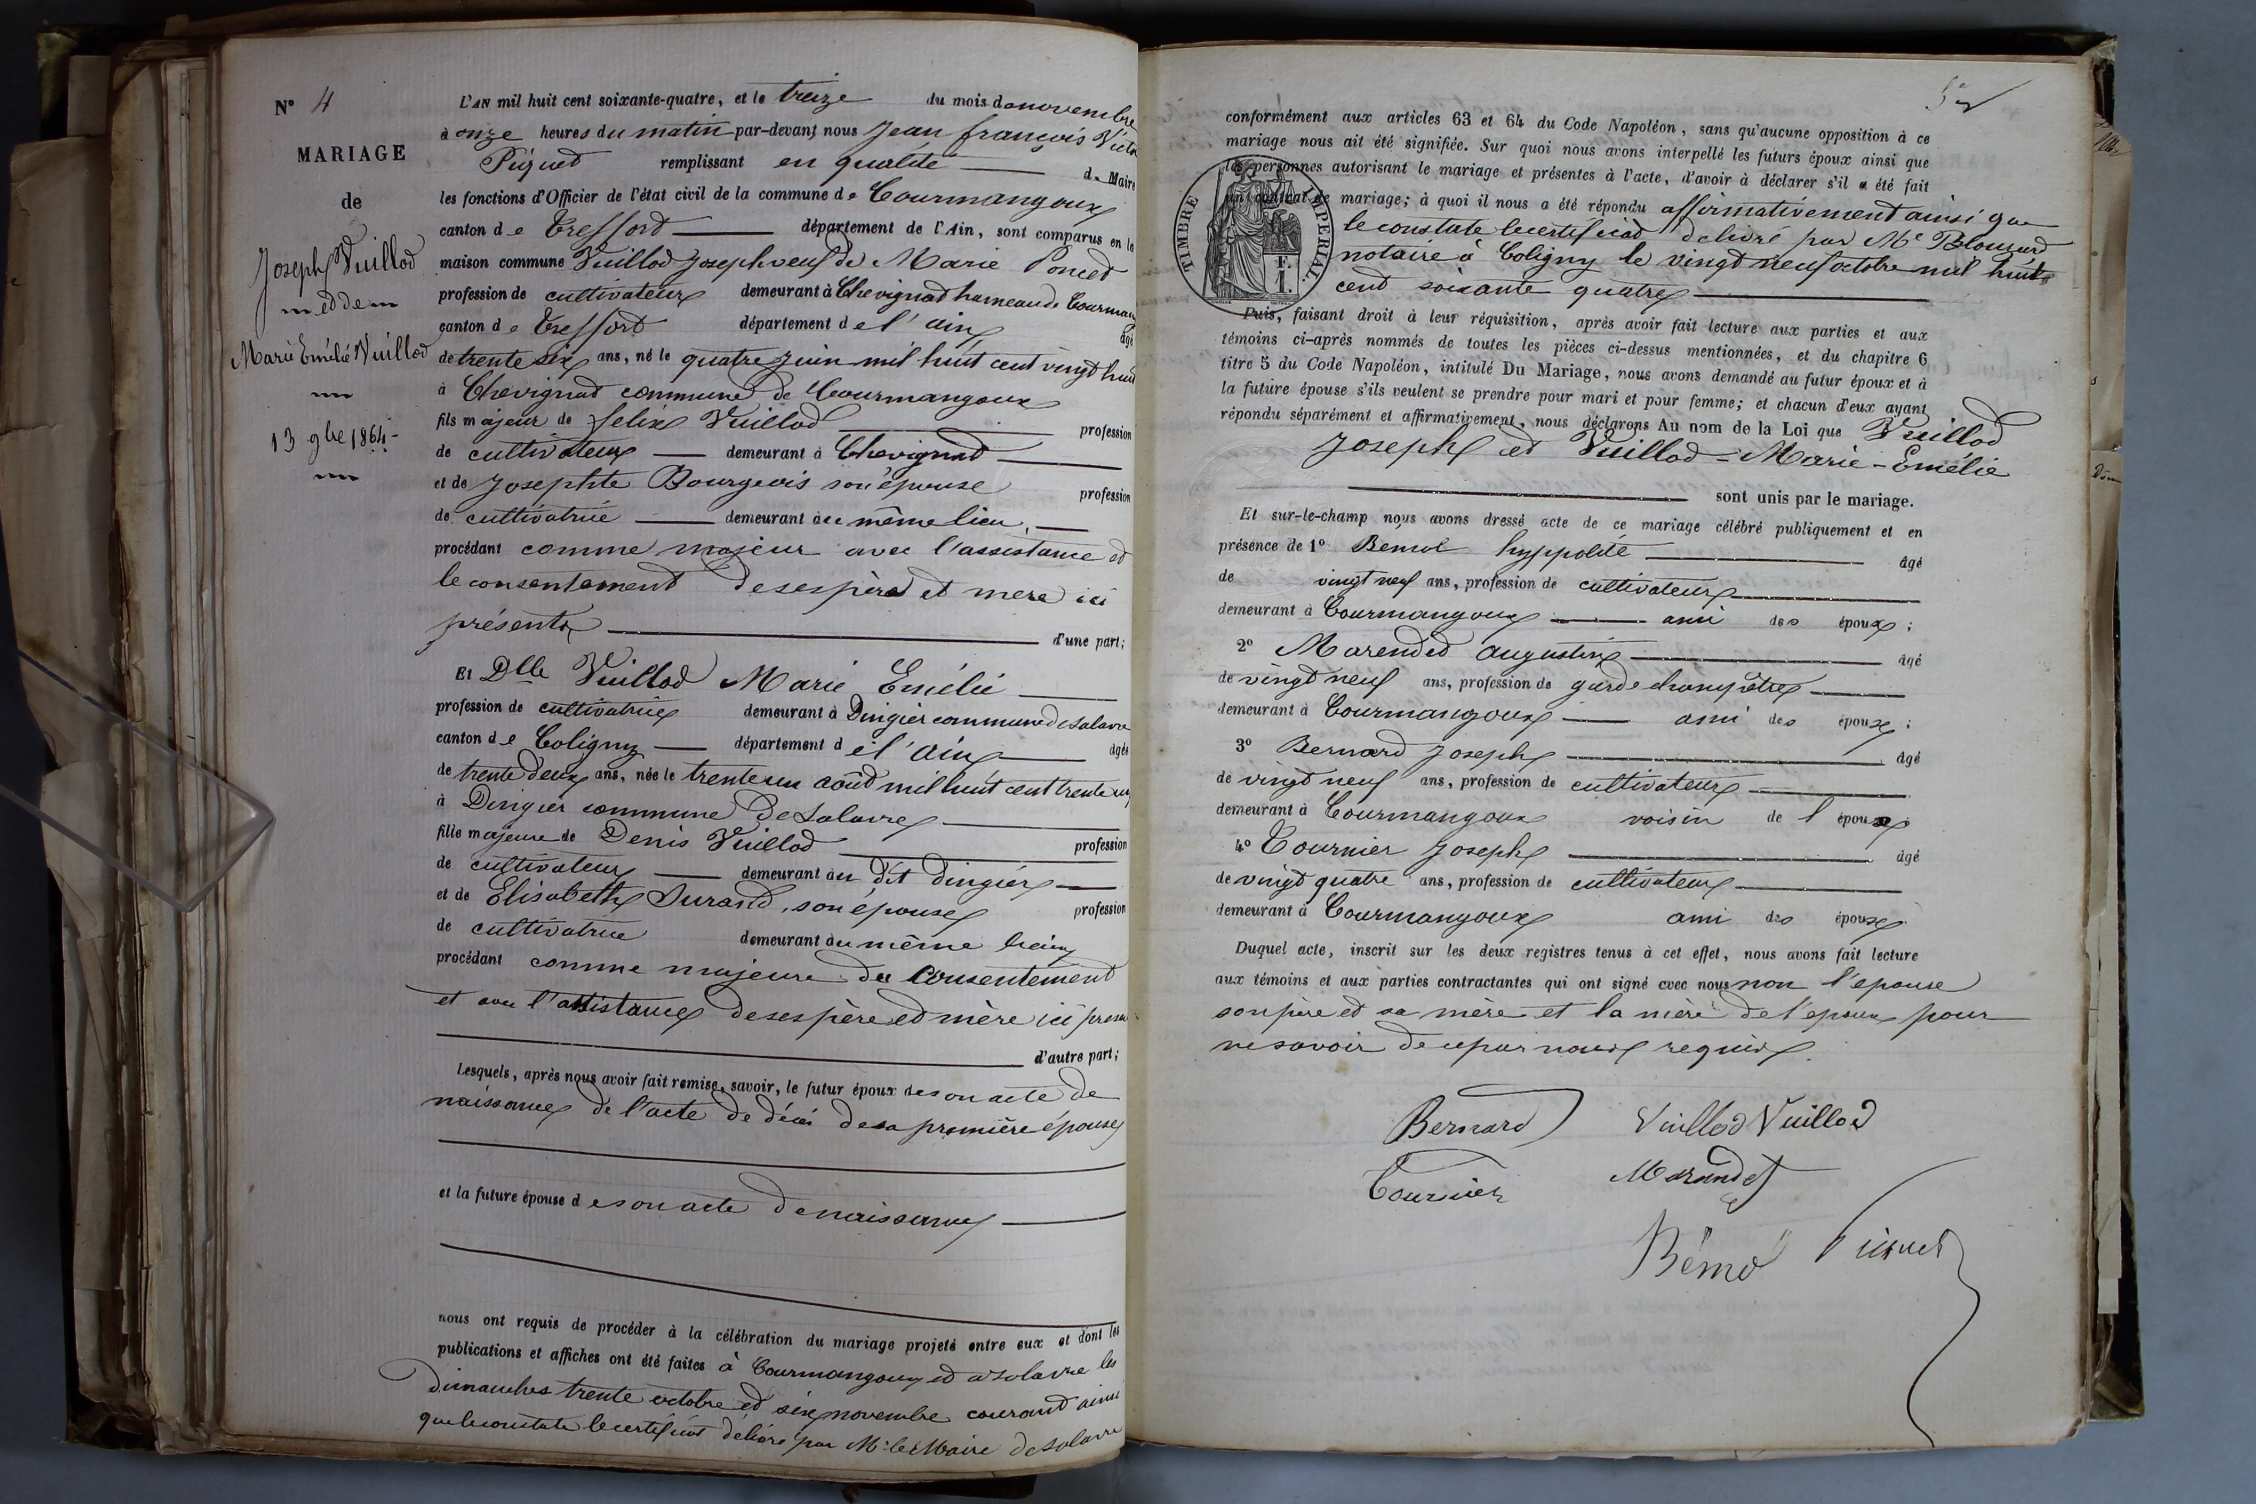 N° 4
MARIAGE
de
Joseph Vuillod
et
Marie Emélie Vuillod
13 9bre 1864
L'AN mil huit cent soixante-quatre, et le treize du mois de novembre
à onze heures du matin par-devant nous Jean françois Victor
Piquet remplissant en qualité de Maire
les fonctions d'Officier de l'état civil de la commune de Courmangoux
canton de Treffort département de l'Ain, sont comparus en la
maison commune Vuillod Joseph veuf de Marie Poncet
profession de cultivateur demeurant à Chevignat hameau de Courman
canton de Treffort département de l'ain âgé
de trente six ans, né le quatre juin mil huit cent vingt huit
à Chevignat commune de Courmangoux
fils majeur de felix Vuillod profession
de cultivateur demeurant à Chevignat
et de Josephte Bourgeois son épouse profession
de cultivatrice demeurant au même lieu,
procédant comme majeur avec l'assistance et
le consentement de ses père et mere ici
présents d'une part;
Et Dlle Vuillod Marie Emélie
profession de cultivatrice demeurant à Dingier commune de Salavre
canton de Coligny département de l'ain âgée
de trente deux ans, née le trente un août mil huit cent trente un
à Dingier commune de Salavre
fille majeure de Denis Vuillod profession
de cultivateur demeurant au dit dingier
et de Elisabeth Durand, son épouse profession
de cultivatrice demeurant au même lieu
procédant comme majeure du consentement
et avec l'assistance de ses père et mère ici présen
d'autre part;
Lesquels, après nous avoir fait remise, savoir, le futur époux de son acte de
naissance de l'acte de décès de sa première épouse
et la future épouse de son acte de naissance
nous ont requis de procéder à la célébration du mariage projeté entre eux et dont les
publications et affiches ont été faites à Courmangoux et a Salavre les
dimanches trente octobre et six novembre courant ainsi
que le constate le certificat délivré par Mr le Maire de Salavre
conformément aux articles 63 et 64 du Code Napoléon, sans qu'aucune opposition à ce
mariage nous ait été signifiée. Sur quoi nous avons interpellé les futurs époux ainsi que
les personnes autorisant le mariage et présentes à l'acte, d'avoir à déclarer s'il a été fait
un contrat de mariage; à quoi il nous a été répondu affirmativement ainsi que
TIMBRE IMPERIAL
1 F.
le constate le certificat délivré par Me Blouzard
notaire à Coligny le vingt neuf octobre mil huit
cent soixante quatre
Puis, faisant droit à leur réquisition, après avoir fait lecture aux parties et aux
témoins ci-après nommés de toutes les pièces ci-dessus mentionnées, et du chapitre 6
titre 5 du Code Napoléon, intitulé Du Mariage, nous avons demandé au futur époux et à
la future épouse s'ils veulent se prendre pour mari et pour femme; et chacun d'eux ayant
répondu séparément et affirmativement, nous déclarons Au nom de la Loi que Vuillod
Joseph et Vuillod = Marie - Emélie
sont unis par le mariage.
Et sur-le-champ nous avons dressé acte de ce mariage célébré publiquement et en
présence de 1° Bemol hyppolite âgé
de vingt neuf ans, profession de cultivateur
demeurant à Courmangoux ami des époux;
2° Marendet augustin âgé
de vingt neuf ans, profession de garde champêtre
demeurant à Courmangoux ami des époux;
3° Bernard Joseph âgé
de vingt neuf ans, profession de cultivateur
demeurant à Courmangoux voisin de l'époux
4° Tournier Joseph âgé
de vingt quatre ans, profession de cultivateur
demeurant à Courmangoux ami des époux.
Duquel acte, inscrit sur les deux registres tenus à cet effet, nous avons fait lecture
aux témoins et aux parties contractantes qui ont signé avec nous non l'epouse
son père et sa mère et la mère de l'epoux pour
ne savoir de ce par nous requis.
Bernard Vuillod Vuillod
Tournier Marandet
Bémol Piquet